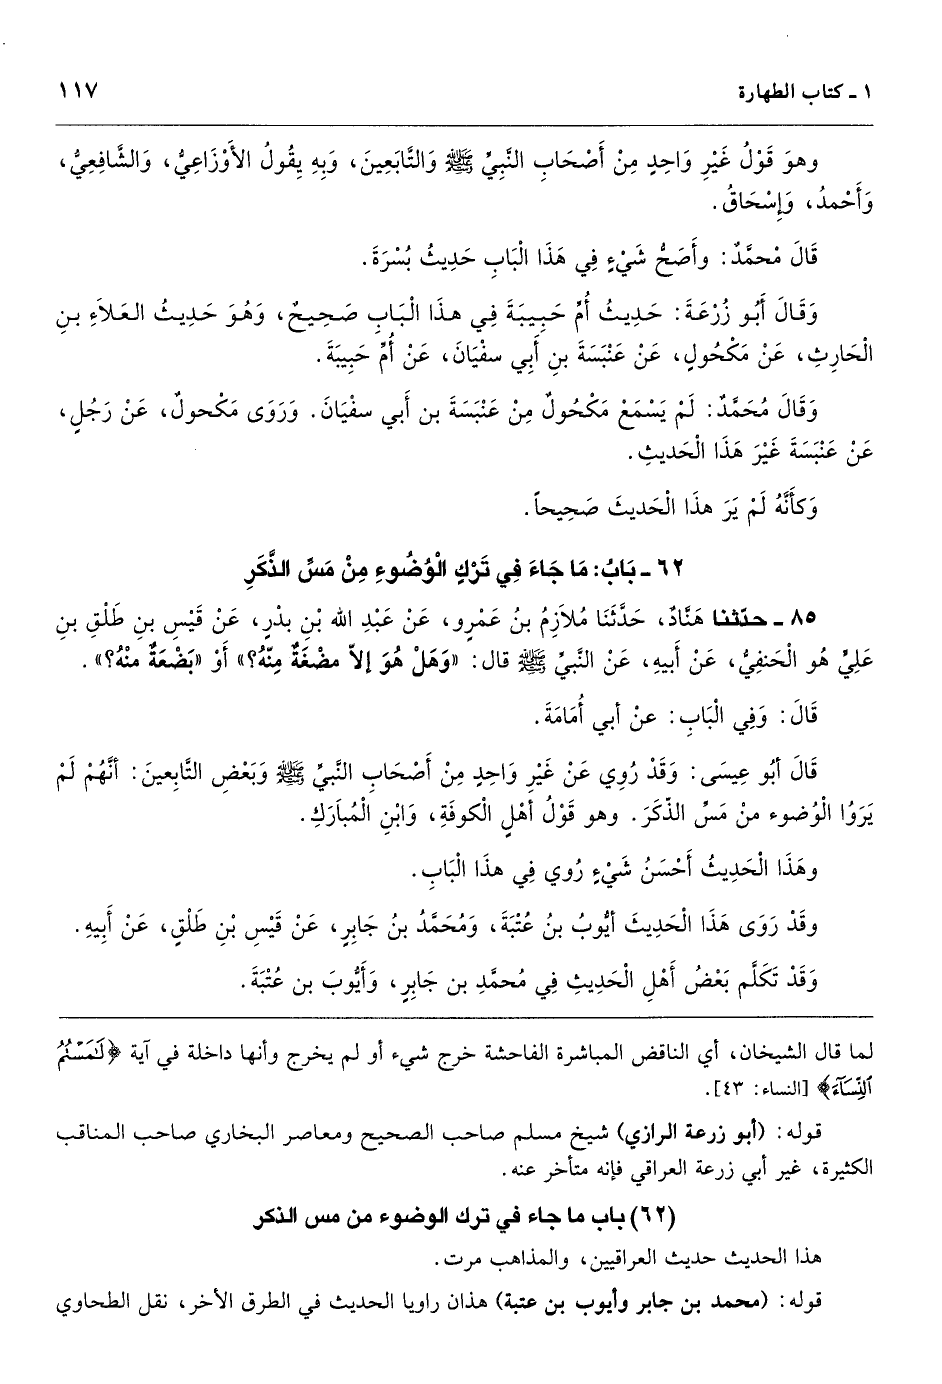 ١ ـ كتاب الطهارة ١١٧
وهوَ قَوْلُ غَيْرِ وَاحِدٍ مِنْ أَصْحَابِ النَّبِيِّ ﷺ وَالتَّابَعِينَ، وَبِهِ يقُولُ الأَوْزَاعِيُّ، وَالشَّافِعِيُّ،
وَأَحْمدُ، وَإِسْحَاقُ.
قَالَ مُحمَّدٌ: وأَصَحُّ شَيْءٍ فِي هَذَا الْبَابِ حَدِيثُ بُسْرَةَ.
وَقَالَ أَبُو زُرْعَةَ: حَدِيثُ أُمِّ حَبِيبَةَ فِي هذَا الْبَابِ صَحِيحٌ، وَهُوَ حَدِيثُ العَلاَءِ بنِ
الْحَارِثِ، عَنْ مَكْحُولٍ، عَنْ عَنْبَسَةَ بنِ أَبِي سفْيَانَ، عَنْ أُمِّ حَبِيبَةَ.
وَقَالَ مُحَمَّدٌ: لَمْ يَسْمَعْ مَكْحُولٌ مِنْ عَنْبَسَةَ بن أَبي سفْيَانَ. وَرَوَى مَكْحولٌ، عَنْ رَجُلٍ،
عَنْ عَنْبَسَةَ غَيْرَ هَذَا الْحَديثِ.
وَكأَنَّهُ لَمْ يَرَ هذَا الْحَديثَ صَحِيحاً.
٦٢ ـ بَابُ: مَا جَاءَ فِي تَرْكِ الْوُضُوءِ مِنْ مَسِّ الذَّكَرِ
٨٥ ـ حدّثنا هَنَّادٌ، حَدَّثَنَا مُلاَزِمُ بنُ عَمْرٍو، عَنْ عَبْدِ الله بْنِ بدْرٍ، عَنْ قَيْسِ بنِ طَلْقِ بنِ
عَلِيٍّ هُو الْحَنفِيُّ، عَنْ أَبيهِ، عَنْ النَّبيِّ ﷺ قال: «وَهَلْ هُوَ إلاّ مضْغَةٌ مِنّهُ؟» أَوْ «بَضْعَةٌ منْهُ؟».
قَالَ: وَفِي الْبَابِ: عنْ أبي أُمَامَةَ.
قَالَ أَبُو عِيسَى: وَقَدْ رُوِي عَنْ غَيْرِ وَاحِدٍ مِنْ أَصْحَابِ النَّبيِّ ﷺ وَبَعْضِ التَّابِعينَ: أنَّهُمْ لَمْ
يَرَوُا الْوُضوء منْ مَسِّ الذّكَرَ. وهو قَوْلُ أهْلِ الْكوفَةِ، وَابْنِ الْمُبَارَكِ.
وهَذَا الْحَدِيثُ أَحْسَنُ شَيْءٍ رُوي فِي هذَا الْبَابِ.
وقَدْ رَوَى هَذَا الْحَديثَ أيُّوبُ بنُ عُتْبَةَ، وَمُحَمَّدُ بنُ جَابِرٍ، عَنْ قَيْسِ بْنِ طَلْقٍ، عَنْ أَبِيهِ.
وَقَدْ تكَلَّم بَعْضُ أَهْلِ الْحَديثِ فِي مُحمَّدِ بن جَابِرٍ، وَأَيُّوبَ بن عُتْبَةَ.
لما قال الشيخان، أي الناقض المباشرة الفاحشة خرج شيء أو لم يخرج وأنها داخلة في آية ﴿لَٰمَسْتُمُ
ٱلنِّسَآءَ﴾ [النساء: ٤٣].
قوله: (أبو زرعة الرازي) شيخ مسلم صاحب الصحيح ومعاصر البخاري صاحب المناقب
الكثيرة، غير أبي زرعة العراقي فإنه متأخر عنه.
(٦٢) باب ما جاء في ترك الوضوء من مس الذكر
هذا الحديث حديث العراقيين، والمذاهب مرت.
قوله: (محمد بن جابر وأيوب بن عتبة) هذان راويا الحديث في الطرق الأخر، نقل الطحاوي